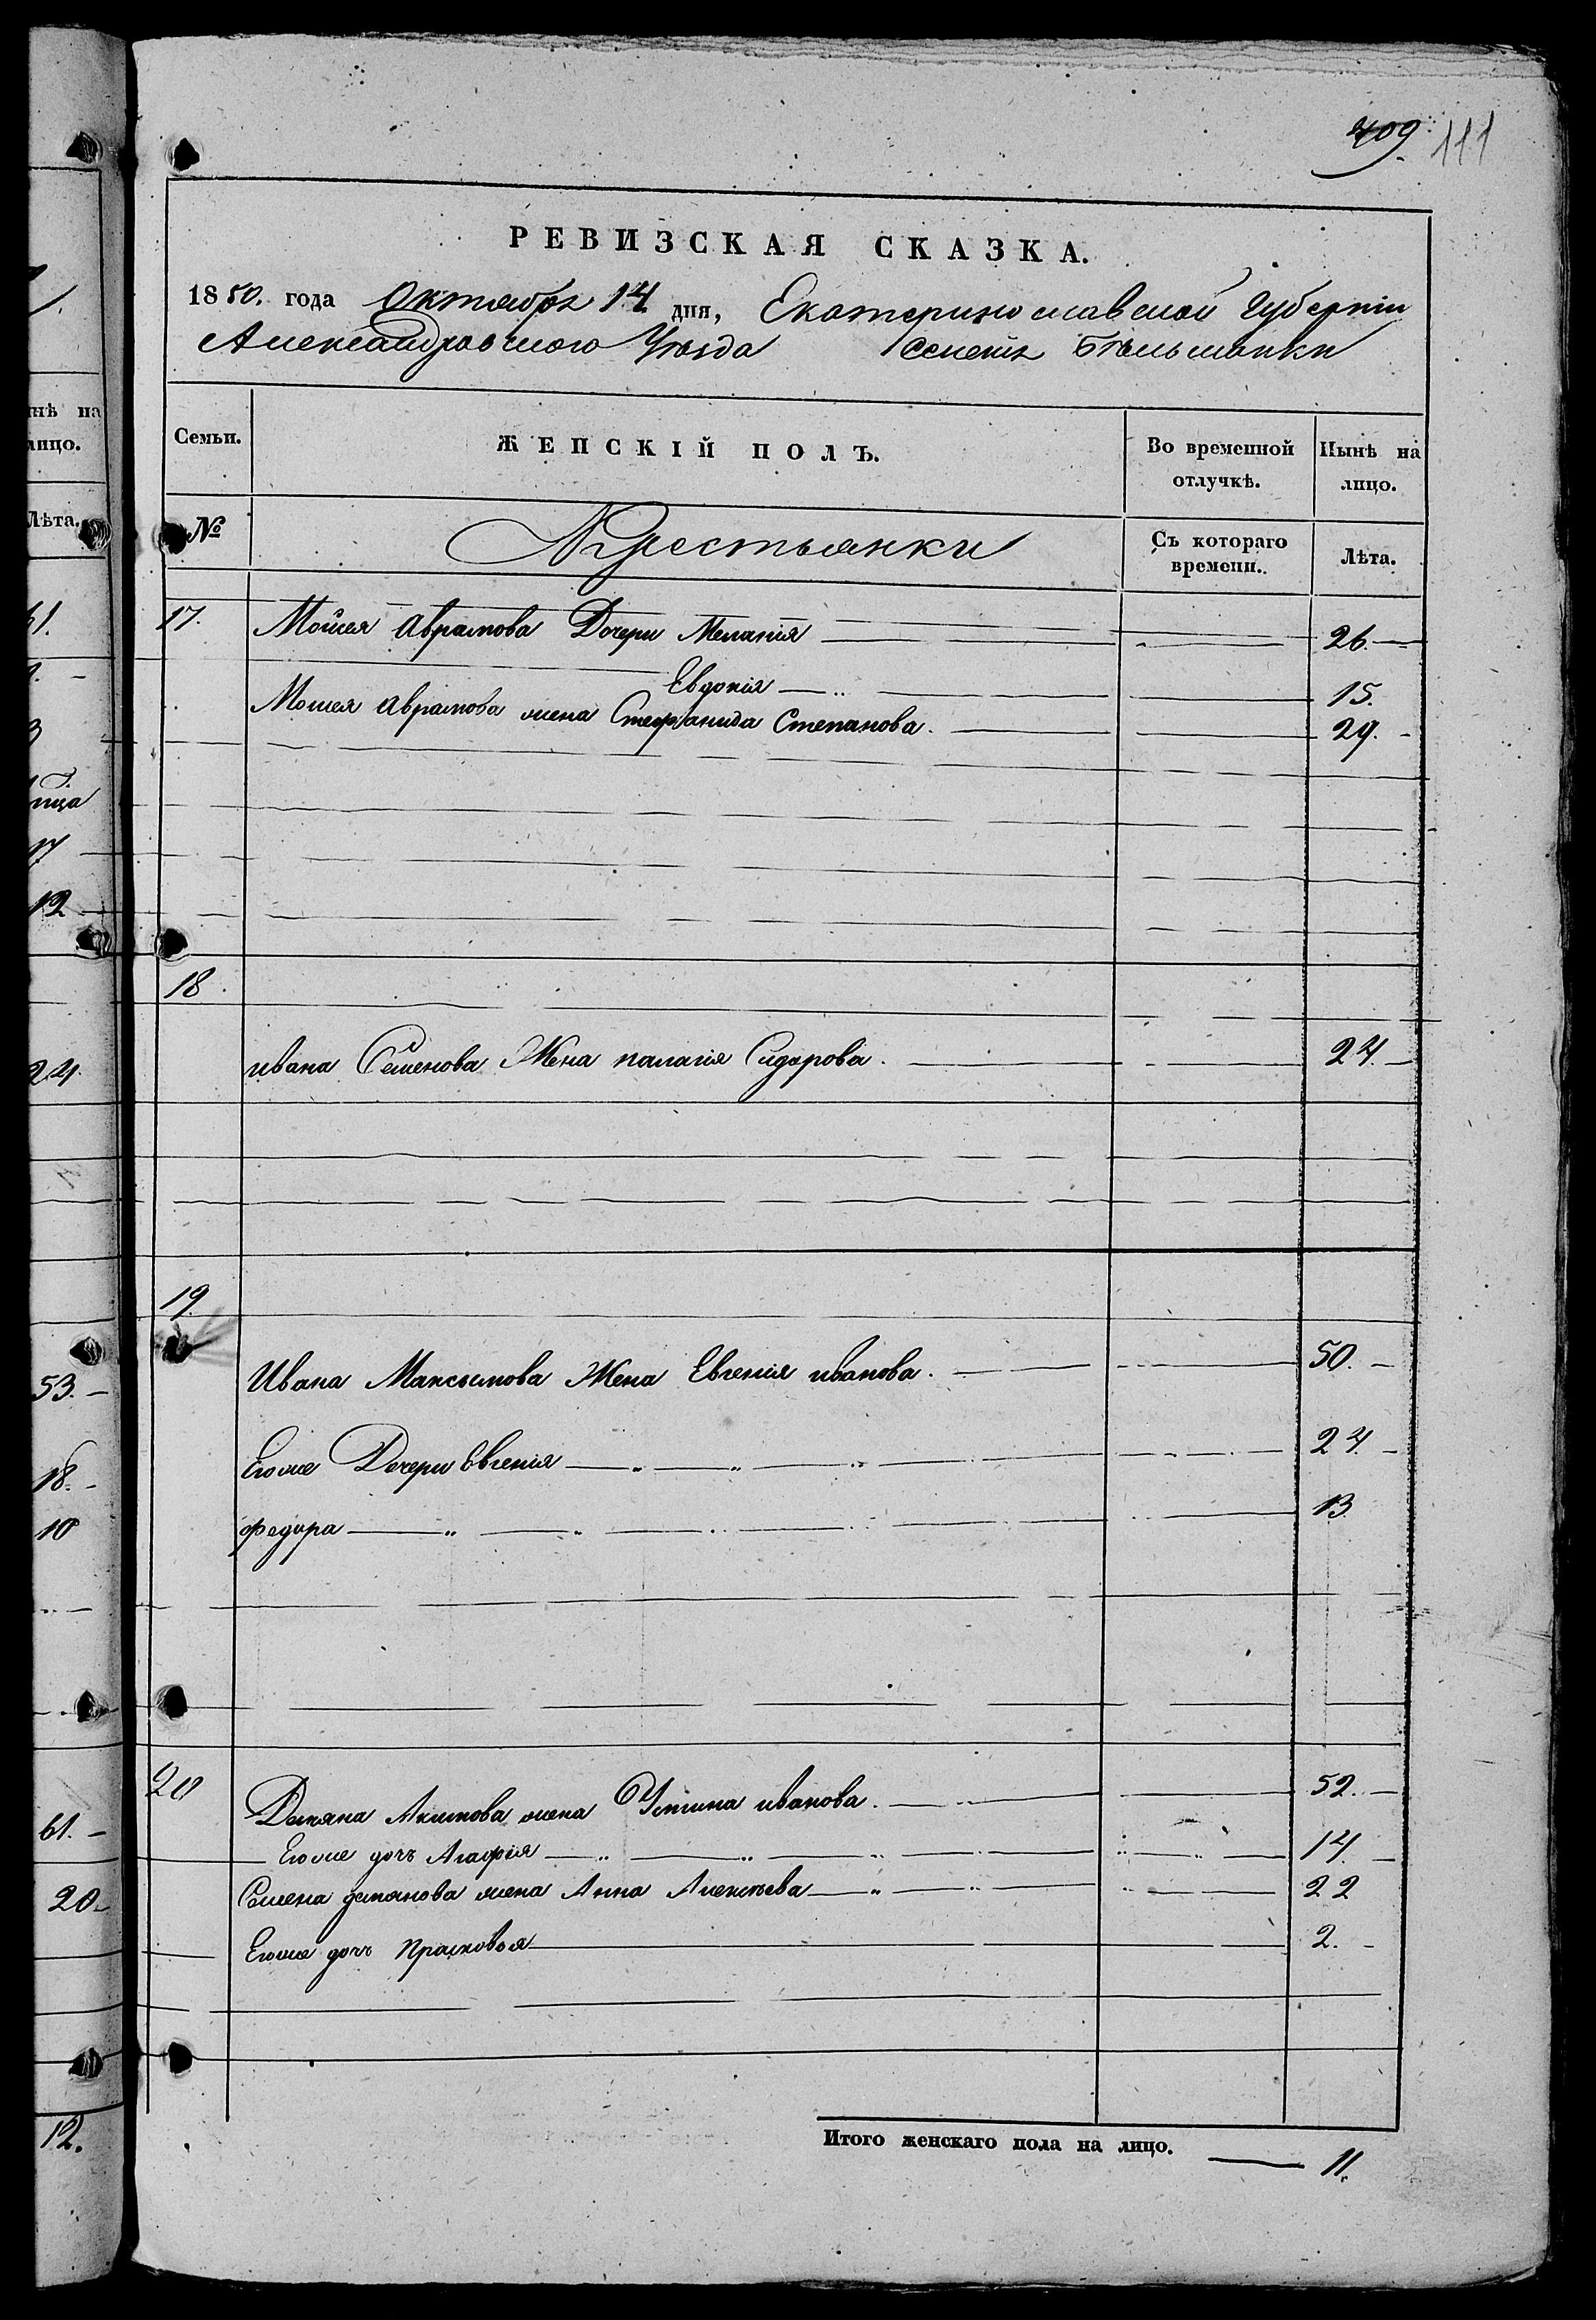 409. 111
РЕВИЗСКАЯ СКАЗКА.
1850. года Октября 14 дня, Екатеринославской Губернии
Александровского Уезда Селенія Бѣльманки
Семьи. ЖЕНСКІЙ ПОЛЪ. Во временной отлучкѣ. Нынѣ на лицо.
№ Крестьянки Съ котораго времени. Лѣта.
17. Мойсея Аврамова Дочери Меланія 26.
Евдокія 15.
Мойсея Аврамова жена Стефанида Степанова. 29.
18.
ивана Семенова Жена палагія Сидорова. 24.
19.
Ивана Максымова Жена Евгенія иванова. 50.
Егоже Дочери Евгенія 24.
федора 13.
20
Демяна Акимова жена Устина иванова. 52.
Егоже дочъ Агафія 14.
Семена демянова жена Анна Алексѣева 22
Егоже дочъ Прасковья 2.
Итого женскаго пола на лицо. 11.
нѣ на
лицо.
Лѣта.
61.
17
12
24.
53.
18.
10
61.
20
12.